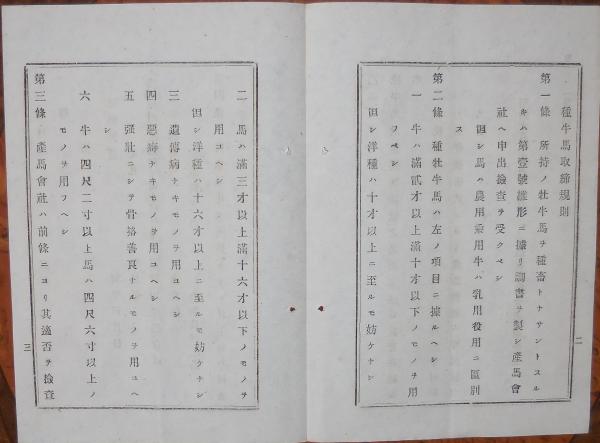 種牛馬取締規則
第一條 所持ノ牡牛馬ヲ種畜トナサントスル
キハ第壹號雛形ニ據リ調書ヲ製シ產馬會
社ヘ申出撿查ヲ受クベシ
但シ馬ハ農用乘用牛ハ乳用役用ニ區別
ス
第二條 種牡牛馬ハ左ノ項目ニ據ルヘシ
一 牛ハ滿貳才以上滿十六才以下ノモノヲ用
フベシ
但シ洋種ハ十才以上ニ至ルモ妨ケナシ
二
二 馬ハ滿三才以上滿十六才以下ノモノヲ
用ユヘシ
但シ洋種ハ十六才以上ニ至ルモ妨ケナシ
三 遺傳病ナキモノヲ用ユヘシ
四 惡癖ナキモノヲ用ユヘシ
五 强壯ニシテ骨挌善良ナルモノヲ用ユヘ
シ
六 牛ハ四尺二寸以上馬ハ四尺六寸以上ノ
モノヲ用フヘシ
第三條 產馬會社ハ前條ニヨリ其適否ヲ撿査
三